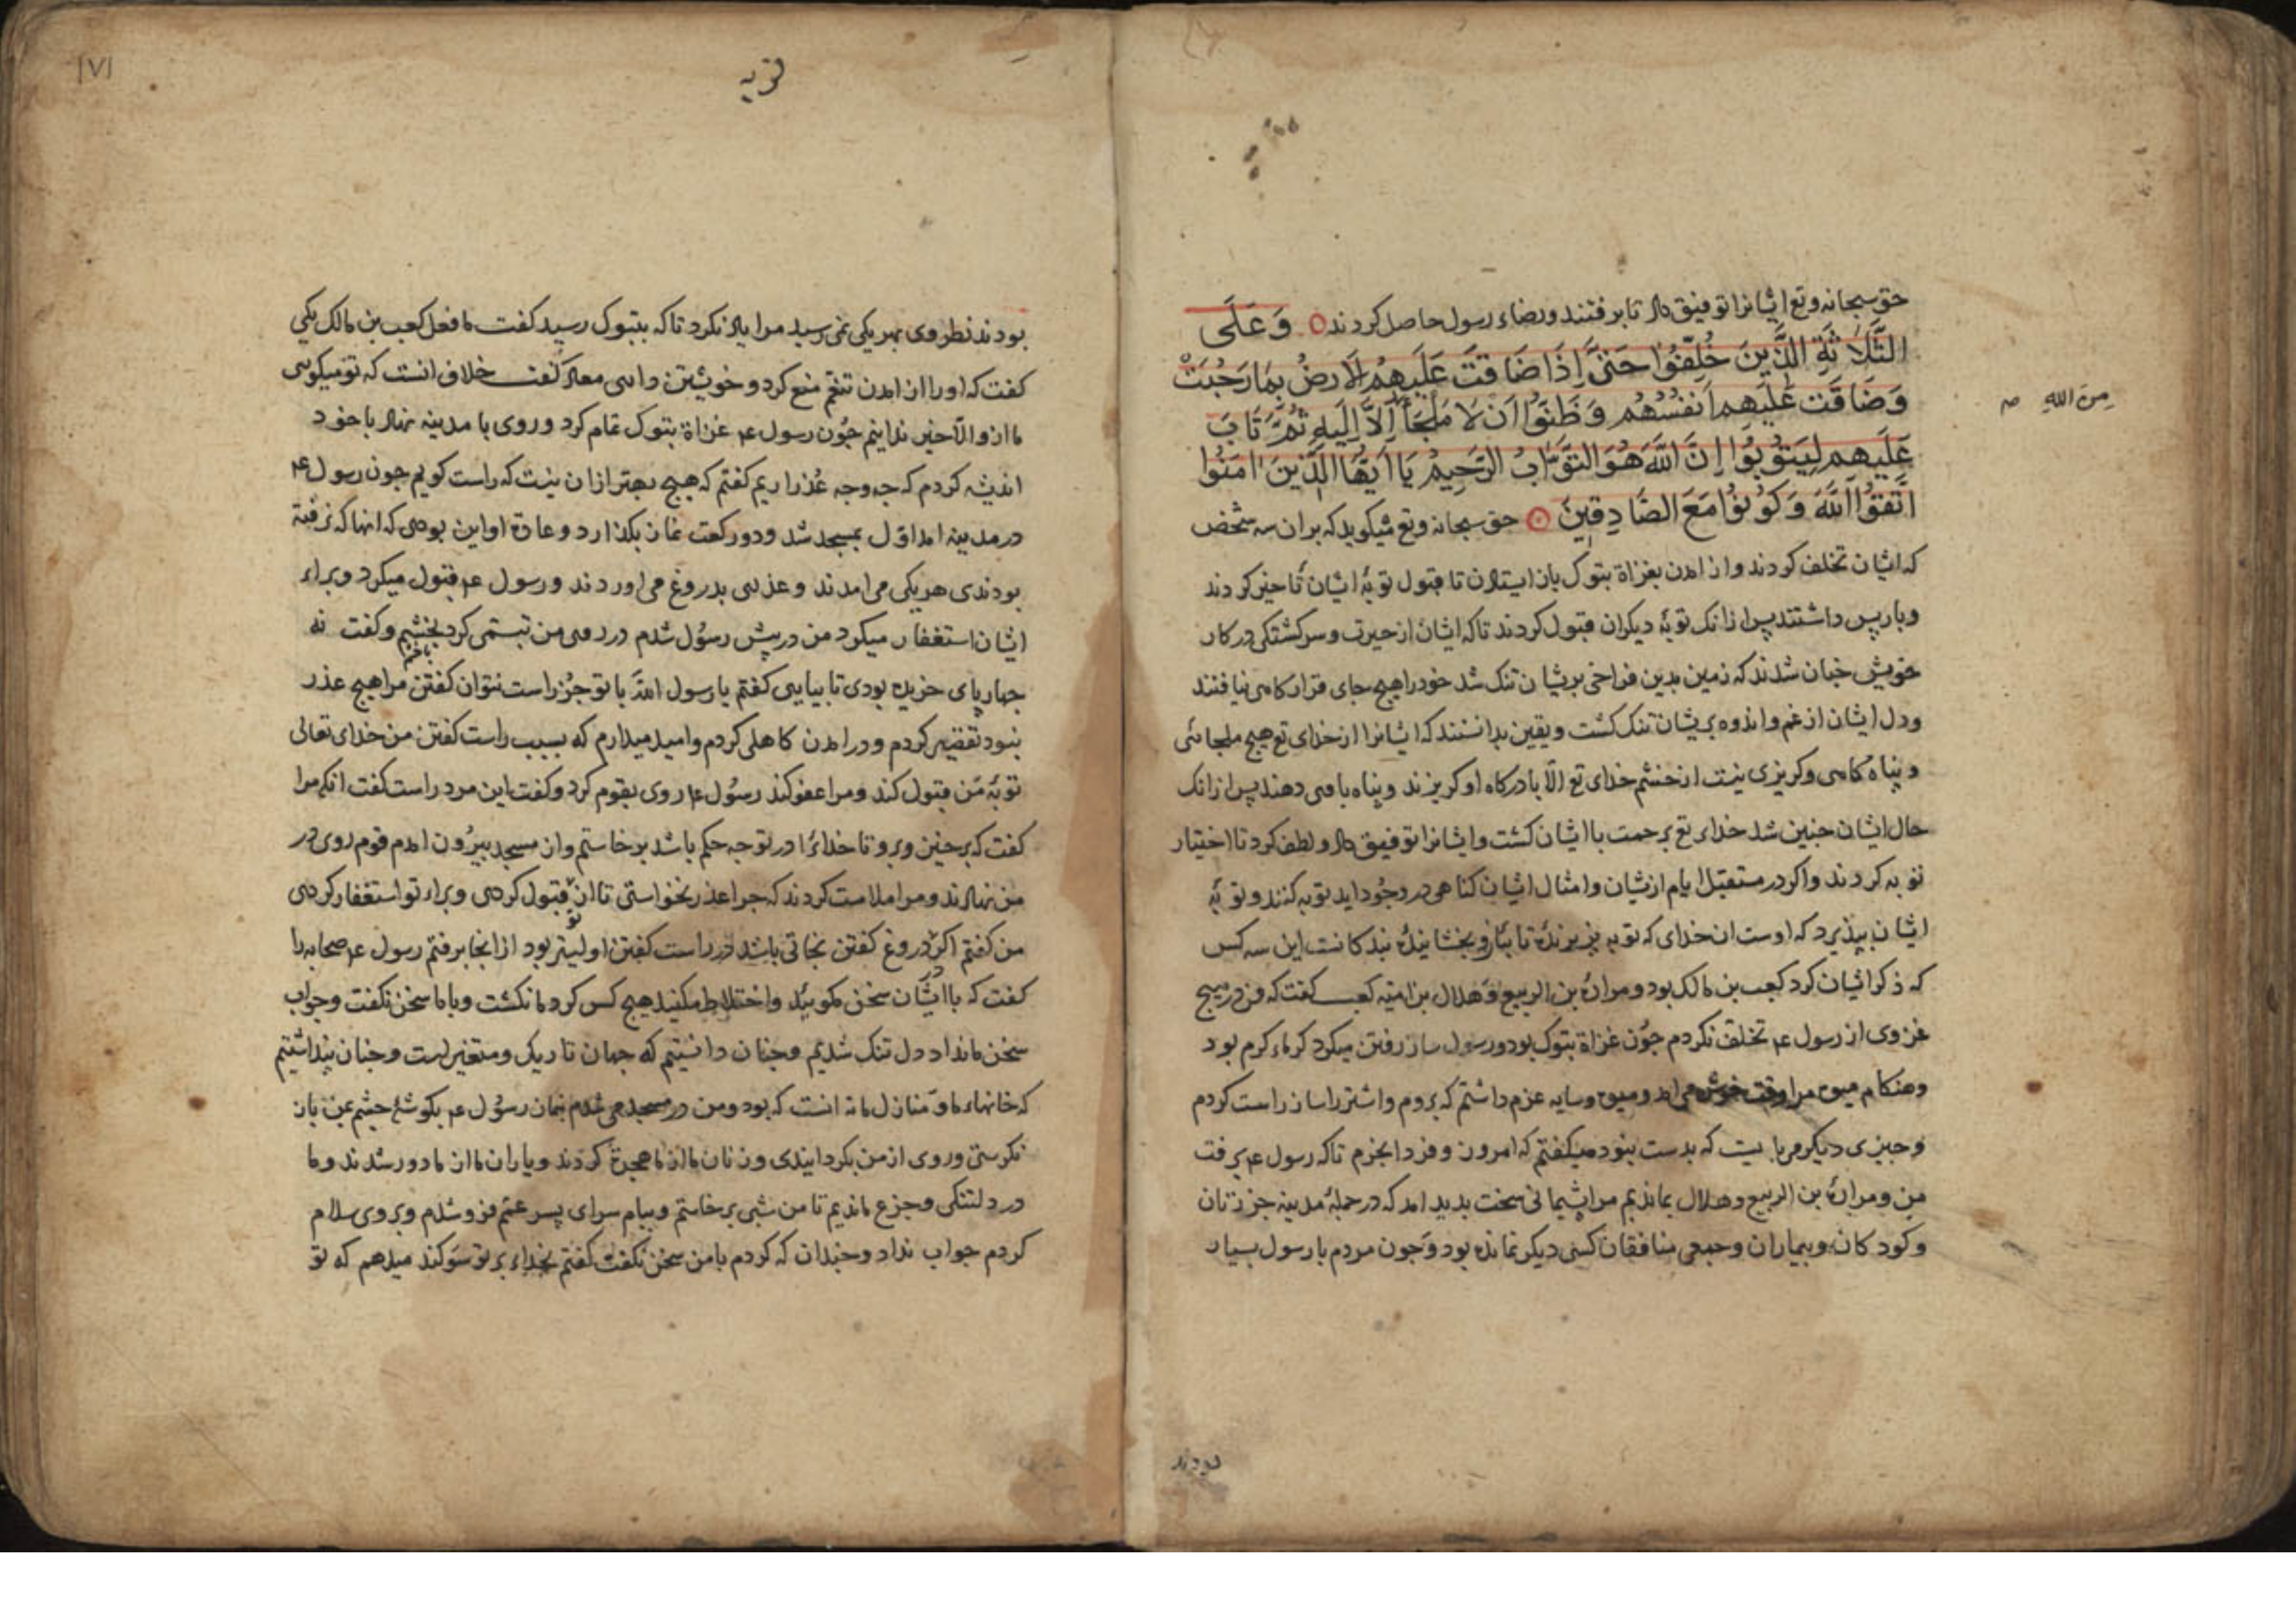 حق سبحانه وتع ایشانرا توفیق داد تا برفتند ورضاء رسول حاصل کردند وَعَلَی
الثَّلَاثَةِ الَّذِینَ خُلِّفُوا حَتَّی إِذَا ضَاقَت عَلَیهِمُ الَارضُ بِمَا رَحُبَتْ
وَضَاقَت عَلَیهِم اَنفُسُهُم وَظَنُّوا اَن لَا مَلجَأَ اِلَّا اِلَیهِ ثُمَّ تَابَ
مِنَ اللهِ
عَلَیهِم لِیَتُوبُوا اِنَّ اللَّهَ هُوَ التَّوَّابُ الرَّحِیمُ یَا اَیُّهَا الَّذِینَ امَنُوا
اتَّقُوا اللَّهَ وَکُونُوا مَعَ الصَّادِقِینَ حق سبحانه وتع میکوید که بران سه شخص
که ایشان تخلف کردند واز امدن بغزاة بتوک باز ایستادن تا قبول توبهٔ ایشان تاخیر کردند
وبازپس داشتند پس ازانک توبهٔ دیکران قبول کردند تا که ایشان از حیرت وسرکشتکی در کار
خویش جنان شدند که زمین بدین فراخی بریشان تنک شد خود را هیج جای قرارکاهی نیافتند
ودل ایشان از غم واندوه بریشان تنک کشت ویقین بدانستند که ایشانرا از خدای تع هیج ملجائی
وپناه کاهی وکریزی نیست از خشم خدای تع الّا با درکاه او کریزند وپناه با وی دهند پس ازانک
حال ایشان جنین شد خدای تع برحمت با ایشان کشت وایشانرا توفیق داد ولطف کرد تا اختیار
توبه کردند واکر در مستقبل ایام ازیشان وامثال ایشان کناهی در وجُود اید توبه کنند وتوبهٔ
ایشان بپذیرد که اوست ان خدای که توبه پذیرندهٔ وبخشایندهٔ بندکانست این سه کس
که ذکر ایشان کرد کعب بن مالک بود ومرارة بن الربیع وهلال بن امیّه کعب کفت که من در هیج
غزوی از رسول عم تخلف نکردم جُون غزاة بتوک بود ورسول ساز رفتن میکرد کرماء کرم بود
وهنکام میوه مرا وقت خوش می امد ومیوه وسایه عزم داشتم که بروم واشتر را ساز راست کردم
وجیزی دیکر می بایست که بدست نبود میکفتم که امروز وفردا بخرم تا که رسول عم برفت
من ومرارة بن الربیع وهلال بماندیم مرا پشیمانی سخت بدید امد که در جملهٔ مدینه جز زنان
وکودکان وبیماران وجمعی منافقان کسی دیکر نمانده بود وجون مردم با رسول بسیار
بودند
توبه
١٧١
بودند نظر وی بهر یکی نمی رسید مرا یاد نکرد تا که بتبوک رسید کفت ما فعل کعب بن مالک یکی
کفت که او را از امدن تنعّم منع کرد وخویشتن معاذ کفت خلاف انست که تو میکوسی
ما ازو الّا خیر ندانیم جُون رسول عم غزاة بتوک تمام کرد وروی با مدینه نهاد با خود
اندیشه کردم که جه وجه عُذر اریم کفتم که هیج بهتر ازان نیست که راست کویم جون رسول عم
در مدینه امد اوّل بمسجد شد ودو رکعت نماز بکذارد وعادة او این بودی که انها که نرفته
بودندی هر یکی می امدند وعذری بدروغ می اوردند ورسول عم قبول میکرد وبراء
ایشان استغفار میکرد من در پیش رسُول شدم در روی من تبسّمی کرد بخشم وکفت نه
جهارپای خریده بودی تا بیایی کفتم یا رسول اللَّه با تو جُز راست نتوان کفتن مرا هیج عذر
نبود تقصیر کردم ودر امدن کاهلی کردم وامید میدارم که بسبب راست کفتن من خدای تعالی
توبهٔ مَن قبول کند ومرا عفو کند رسُول عم روی بقوم کرد وکفت این مرد راست کفت انکه مرا
کفت که برخیز وبرو تا خدای را در تو جه حکم باشد برخاستم واز مسجد بیرُون امدم قوم روی در
من نهادند ومرا ملامت کردند که جرا عذر نخواستی تا از تو قبول کردی وبراء تو استغفار کردی
من کفتم اکر در دروغ کفتن نجاتی باشد در راست کفتن اولیتر بود از انجا برفتم رسول عم صحابه را
کفت که با ایشان سخن مکویید واختلاط مکنید هیج کس کرد ما نکشت وبا ما سخن نکفت وجواب
سخن ما نداد دل تنک شدیم وجنان دانستیم که جهان تاریک ومتغیر است وجنان پنداشتیم
که خانهاء ما ومنازل ما نه انست که بود ومن در مسجد می شدم بنماز رسُول عم بکوشهٔ جشم بمن باز
نکرستی وروی از من بکردانیدی وزنان ما از ما هجرة کردند ویاران ما از ما دور شدند وما
در دلتنکی وجزع ماندیم تا من شبی برخاستم وببام سرای پسر عمّم فرو شدم وبروی سلام
کردم جواب نداد وجندان که کردم با من سخن نکفت کفتم بخدای بر تو سَوکند میدهم که تو